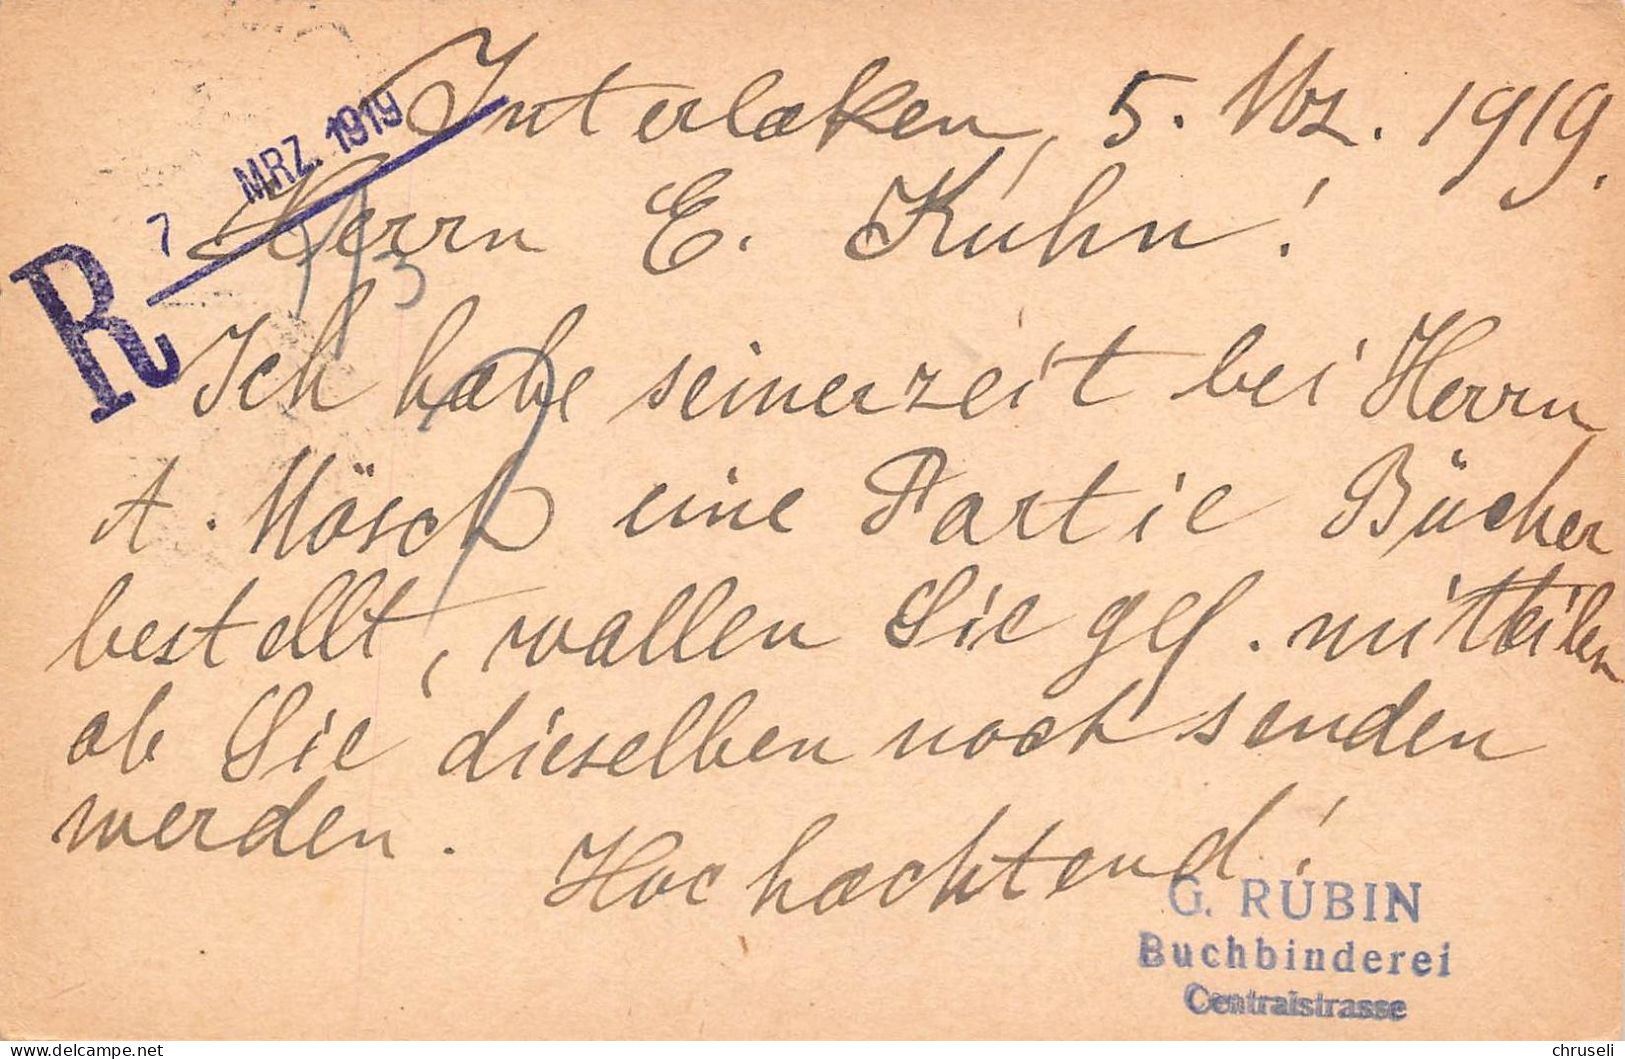 Interlaken, 5. Mrz. 1919.
7 MRZ. 1919
R
Herrn E. Kuhn!
Ich habe seinerzeit bei Herrn
A. Mösch eine Partie Bücher
bestellt, wollen Sie gefl. mitteilen
ob Sie dieselben noch senden
werden.
Hochachtend!
G. RUBIN
Buchbinderei
Centralstrasse
delcampe.net
chruseli